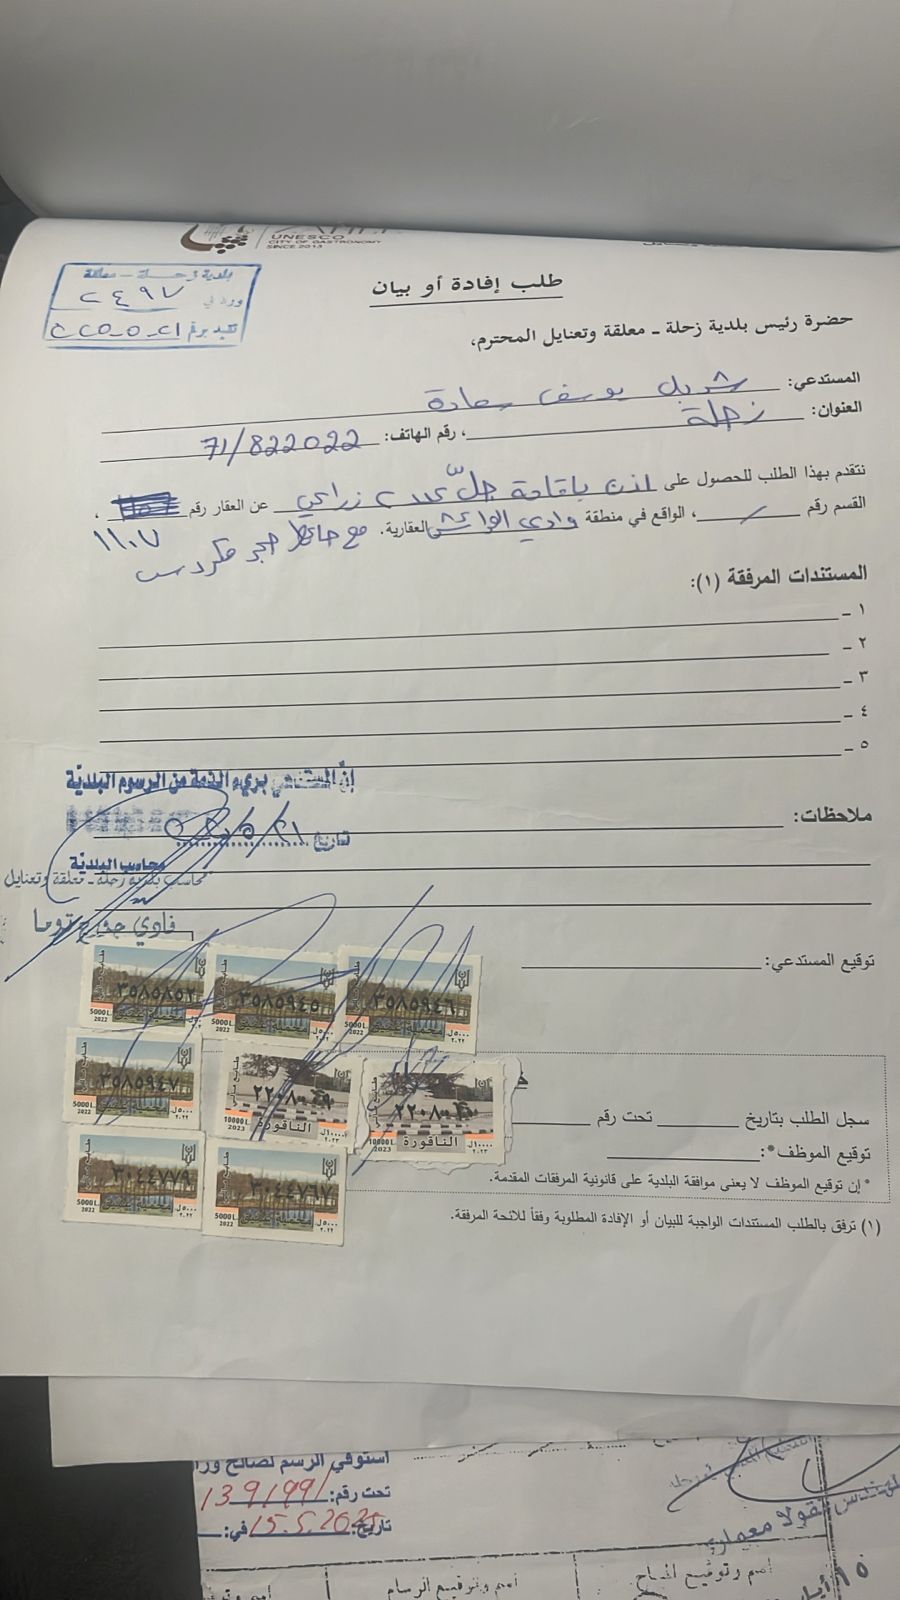 UNESCO
CITY OF GASTRONOMY
SINCE 2013
بلدية زحلة - معلقة
ورد في ٢٤٩٧
طلب إفادة أو بيان
حضرة رئيس بلدية زحلة - معلقة وتعنايل المحترم،
المستدعي: شربل يوسف سعادة
العنوان: زحلة ، رقم الهاتف: 71/822022
نتقدم بهذا الطلب للحصول على اذن باقامة جلّ زراعي عن العقار رقم ،
١١٠٧
القسم رقم / ، الواقع في منطقة وادي العقارية. مع حائط حجر
المستندات المرفقة (١):
١ -
٢ -
٣ -
٤ -
٥ -
إنّ المستدعي بريء الذمة من الرسوم البلديّة
تاريخ
محاسب البلديّة
محاسب بلدية زحلة - معلقة وتعنايل
ملاحظات:
توقيع المستدعي:
٣٥٨٥٨٥٢
5000 L.
2022
٣٥٨٥٩٤٥
5000 L.
2022
٣٥٨٥٩٤٦
5000 L.
2022
٣٥٨٥٩٤٧
5000 L.
2022
الناقورة
10000 L.
2023
الناقورة
10000 L.
2023
٣٠٤٤٧٧٩
5000 L.
2022
٣٠٤٤٧٦٧
5000 L.
2022
سجل الطلب بتاريخ تحت رقم
توقيع الموظف*:
* إن توقيع الموظف لا يعنى موافقة البلدية على قانونية المرفقات المقدمة.
(١) ترفق بالطلب المستندات الواجبة للبيان أو الإفادة المطلوبة وفقاً للائحة المرفقة.
استوفي الرسم لصالح
تحت رقم: 1391991
تاريخ: 15.5.2025 في:
اسم وتوقيع الرسام